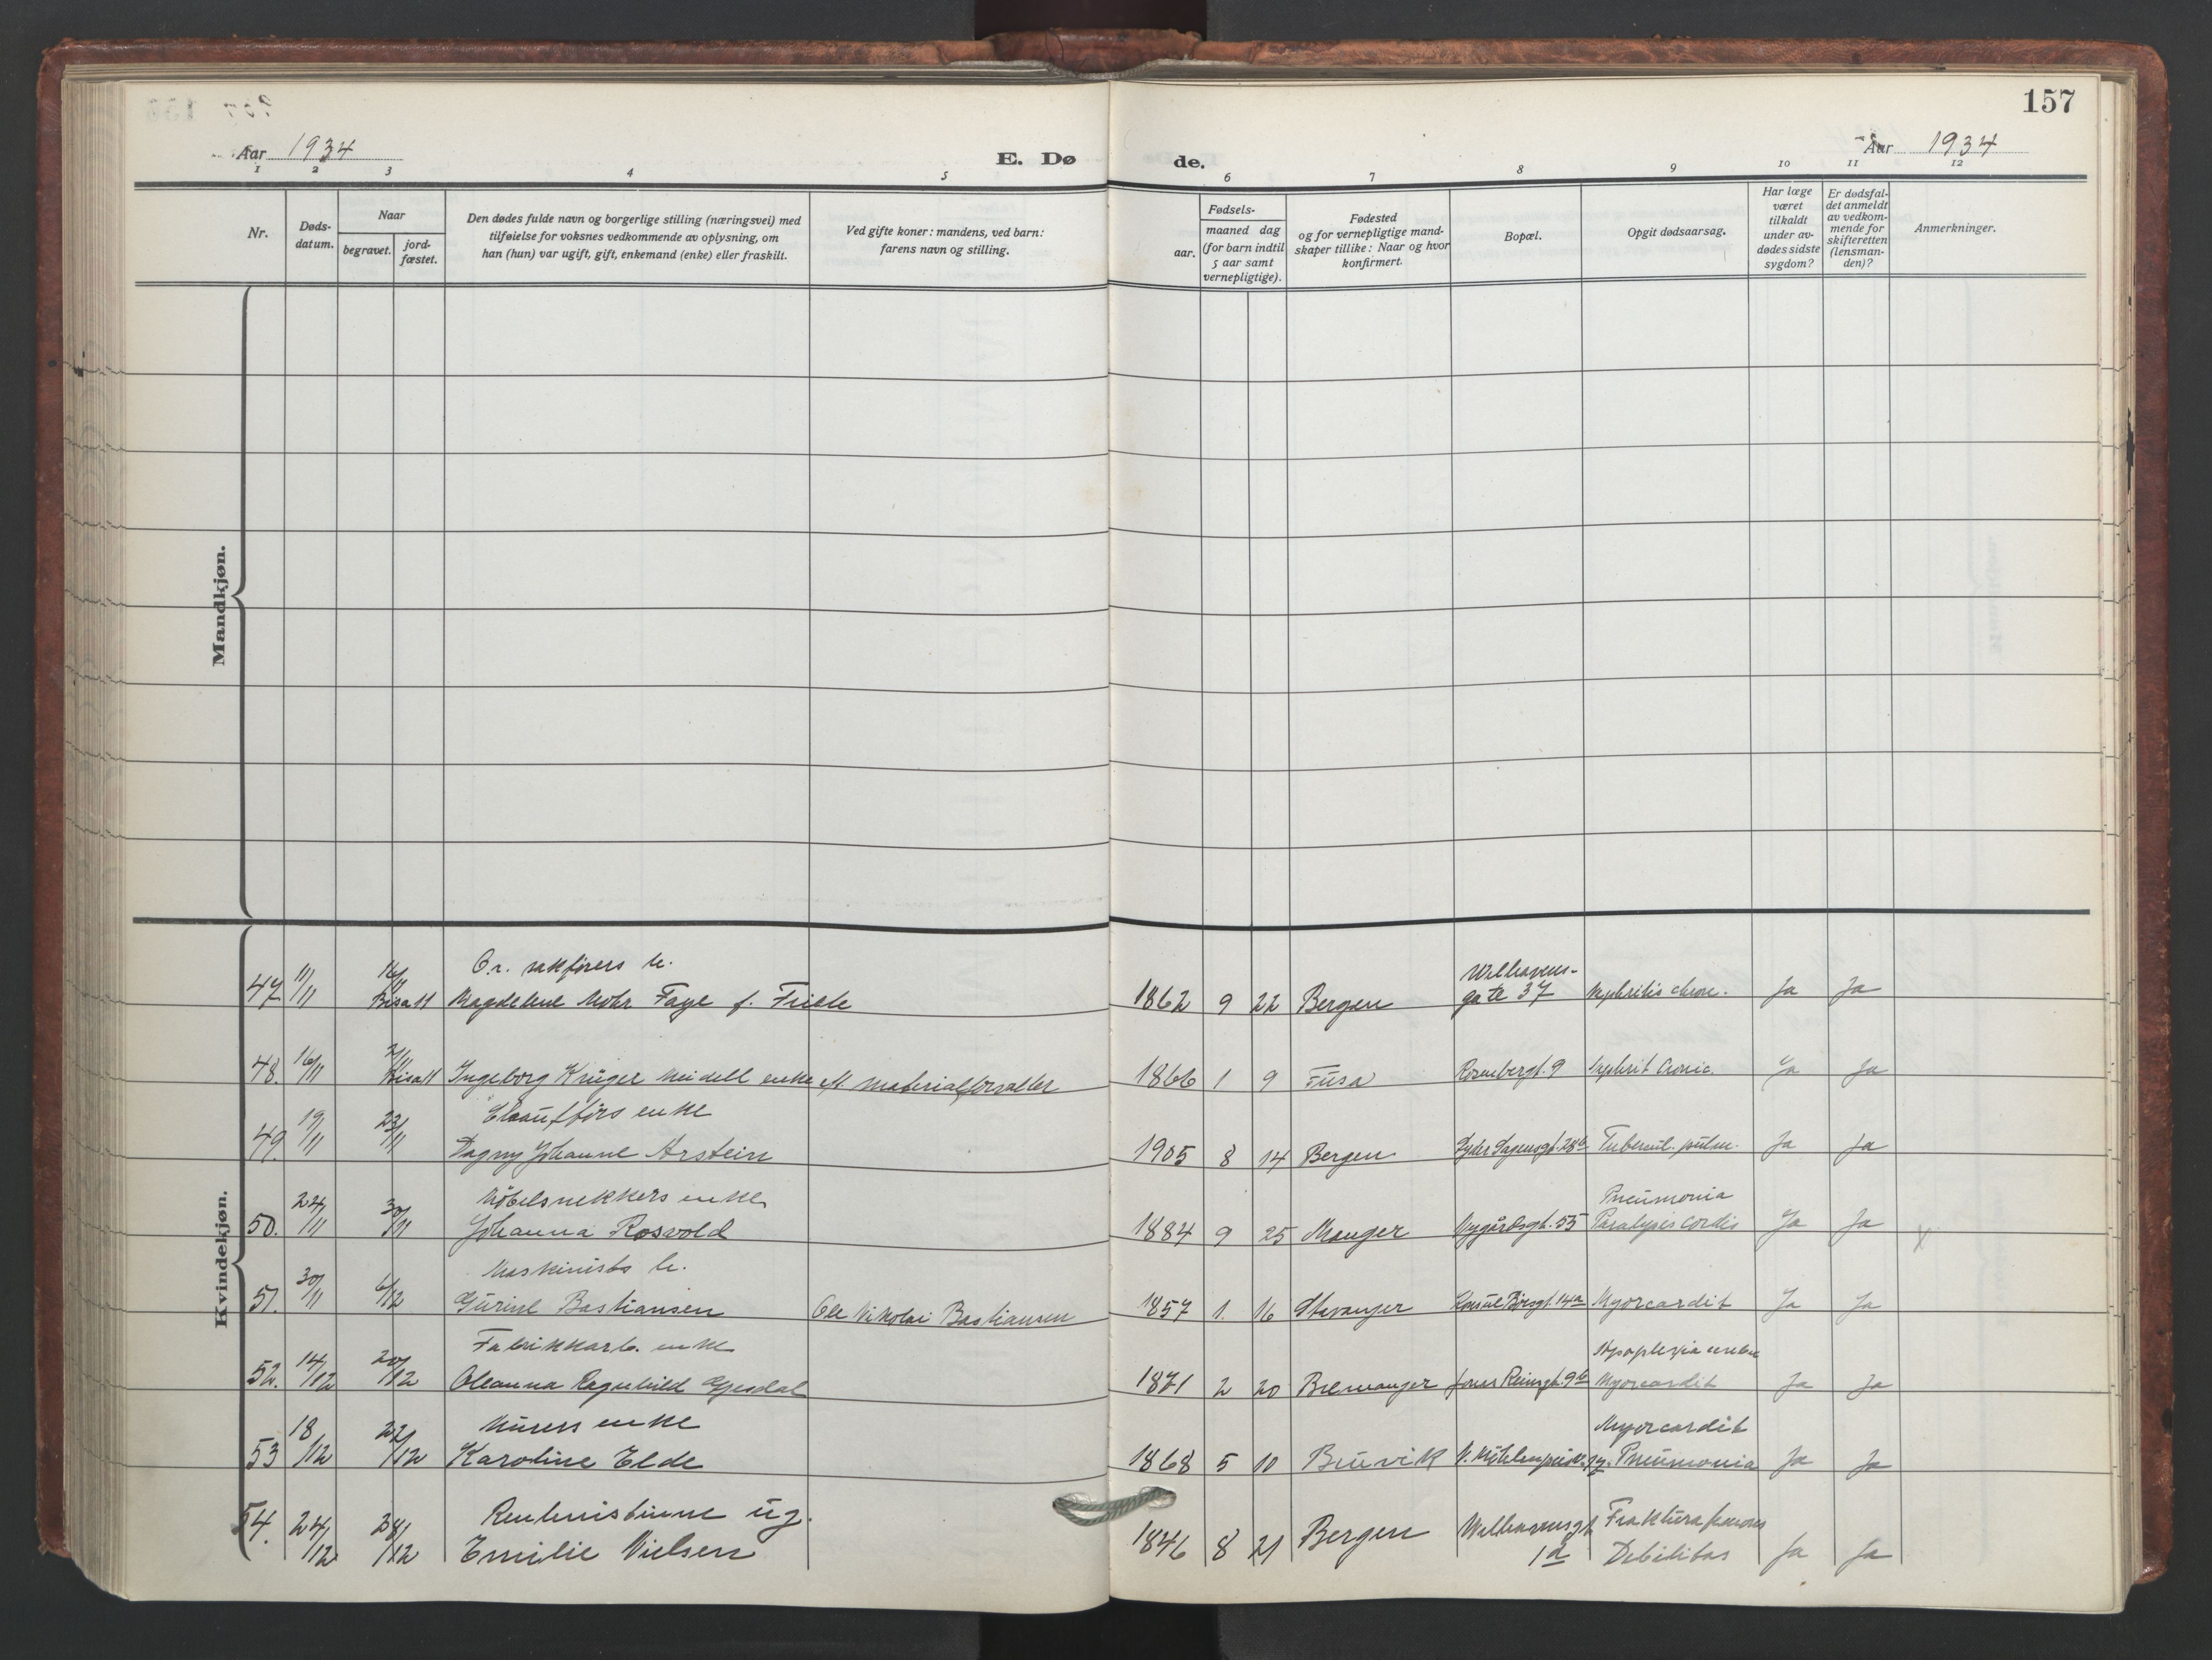 157
Aar 1934
E. Døde.
Aar 1934
1 2 3 4 5 6 7 8 9 10 11 12
Nr.
Døds-
datum.
Naar
begravet.
jord-
fæstet.
Den dødes fulde navn og borgerlige stilling (næringsvei) med
tilføielse for voksnes vedkommende av oplysning, om
han (hun) var ugift, gift, enkemand (enke) eller fraskilt.
Ved gifte koner: mandens, ved barn:
farens navn og stilling.
aar.
Fødsels-
maaned dag
(for barn indtil
5 aar samt
vernepligtige).
Fødested
og for vernepligtige mand-
skaper tillike: Naar og hvor
konfirmert.
Bopæl.
Opgit dødsaarsag.
Har læge
været
tilkaldt
under av-
dødes sidste
sygdom?
Er dødsfal-
det anmeldt
av vedkom-
mende for
skifteretten
(lensman-
den)?
Anmerkninger.
Mandkjøn.
Kvindekjøn.
O.r. sakførers
47 11/11 16/11 Magdelene Mohr Faye f. Friele 1862 9 22 Bergen Welhavens-
gate 37 Nephritis chron. Ja Ja
48. 16/11 21/11 Ingeborg Krüger Meidell enke eft. materialforvalter 1866 1 9 Fusa Rosenbergt. 9 Nephrit Cronic. Ja Ja
enke
49. 19/11 23/11 Dagny Johanne Arstein 1905 8 14 Bergen Lyder Sagensgt. 28b Tubercul. pulm. Ja Ja
Møbelsnekkers enke Pneumonia
50. 24/11 30/11 Johanna Rosvold 1884 9 25 Manger Nygårdsgt. 55 Paralysis Cordis Ja Ja x
Maskinists
51. 30/11 6/12 Gurine Bastiansen Ole Nikolai Bastiansen 1857 1. 16 Stavanger Konsul Børsgt. 14a Myorcardit Ja Ja
Fabrikkarb. enke
52. 14/12 20/12 Oleanna Ragnhild Gjesdal 1871 2 20 Bremanger Jonas Reinsgt. 9b Myorcardit Ja Ja
Murers enke Myorcardit
53 18/12 22/12 Karoline Elde 1868 5 10 Bruvik Pneumonia Ja Ja
Rentenistinne ug. Fraktura femoris
54. 24/12 28/12 Emilie Nielsen 1846 8 21 Bergen Welhavensgt
1a Debilitas Ja Ja